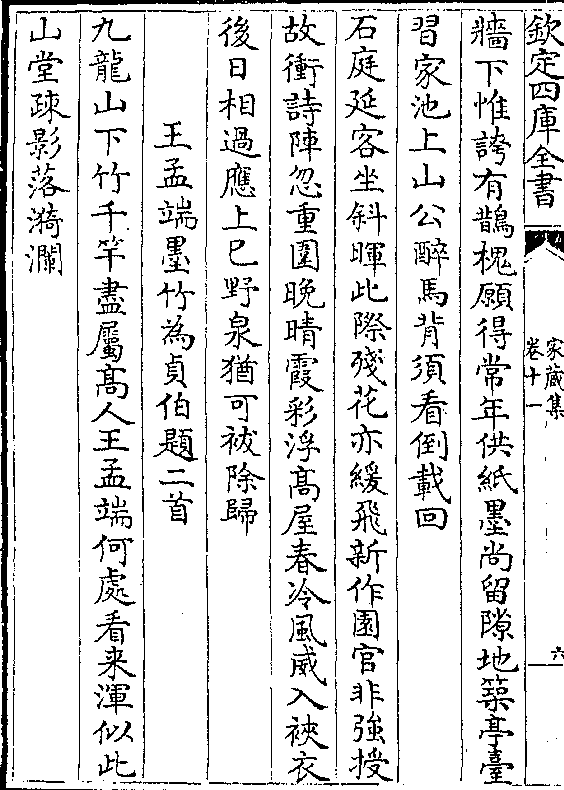 欽定四庫全書
家蔵集
卷十一
六
牆下惟誇有鵲槐願得常年供紙墨尚留隙地築亭臺
習家池上山公醉馬背須看倒載回
石庭延客坐斜暉此際殘花亦緩飛新作園官非強授
故衝詩陣忽重圍晚晴霞彩浮髙屋春冷風威入裌衣
後日相過應上巳野泉猶可祓除歸
王孟端墨竹為貞伯題二首
九龍山下竹千竿盡屬髙人王孟端何處看来渾似此
山堂疎影落漪瀾